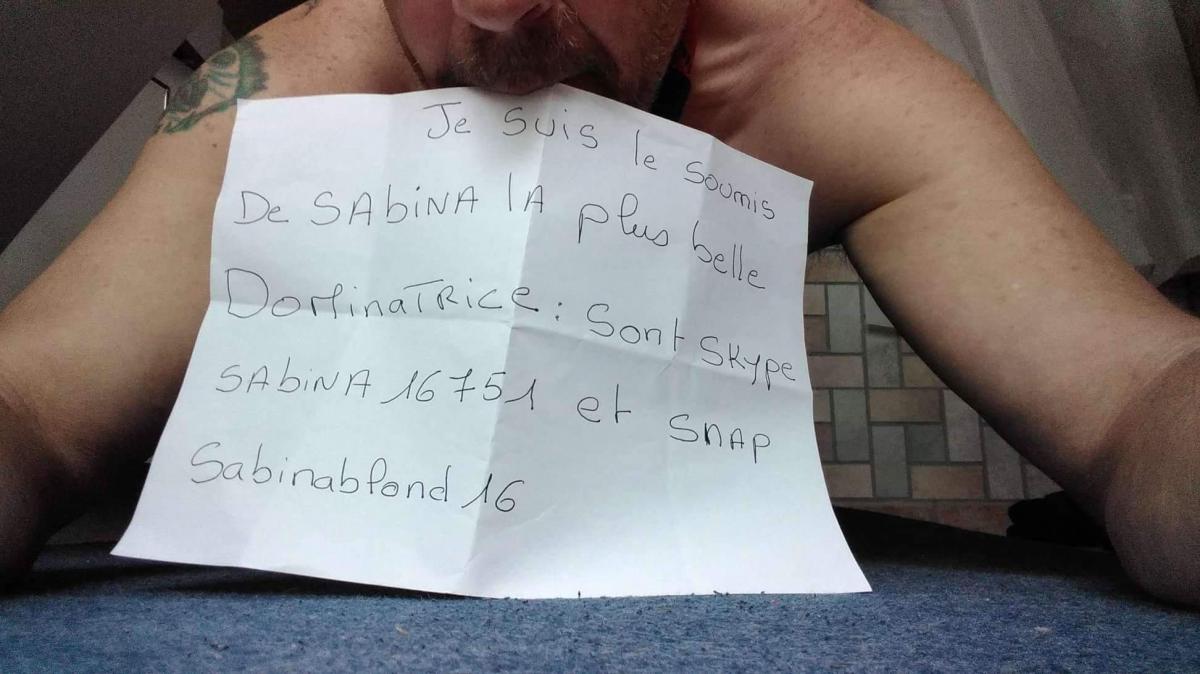 Je suis le soumis
De SAbiNA lA plus belle
DomiNaTRice : Sont SKype
SAbiNA 16751 et SNAP
Sabinablond 16